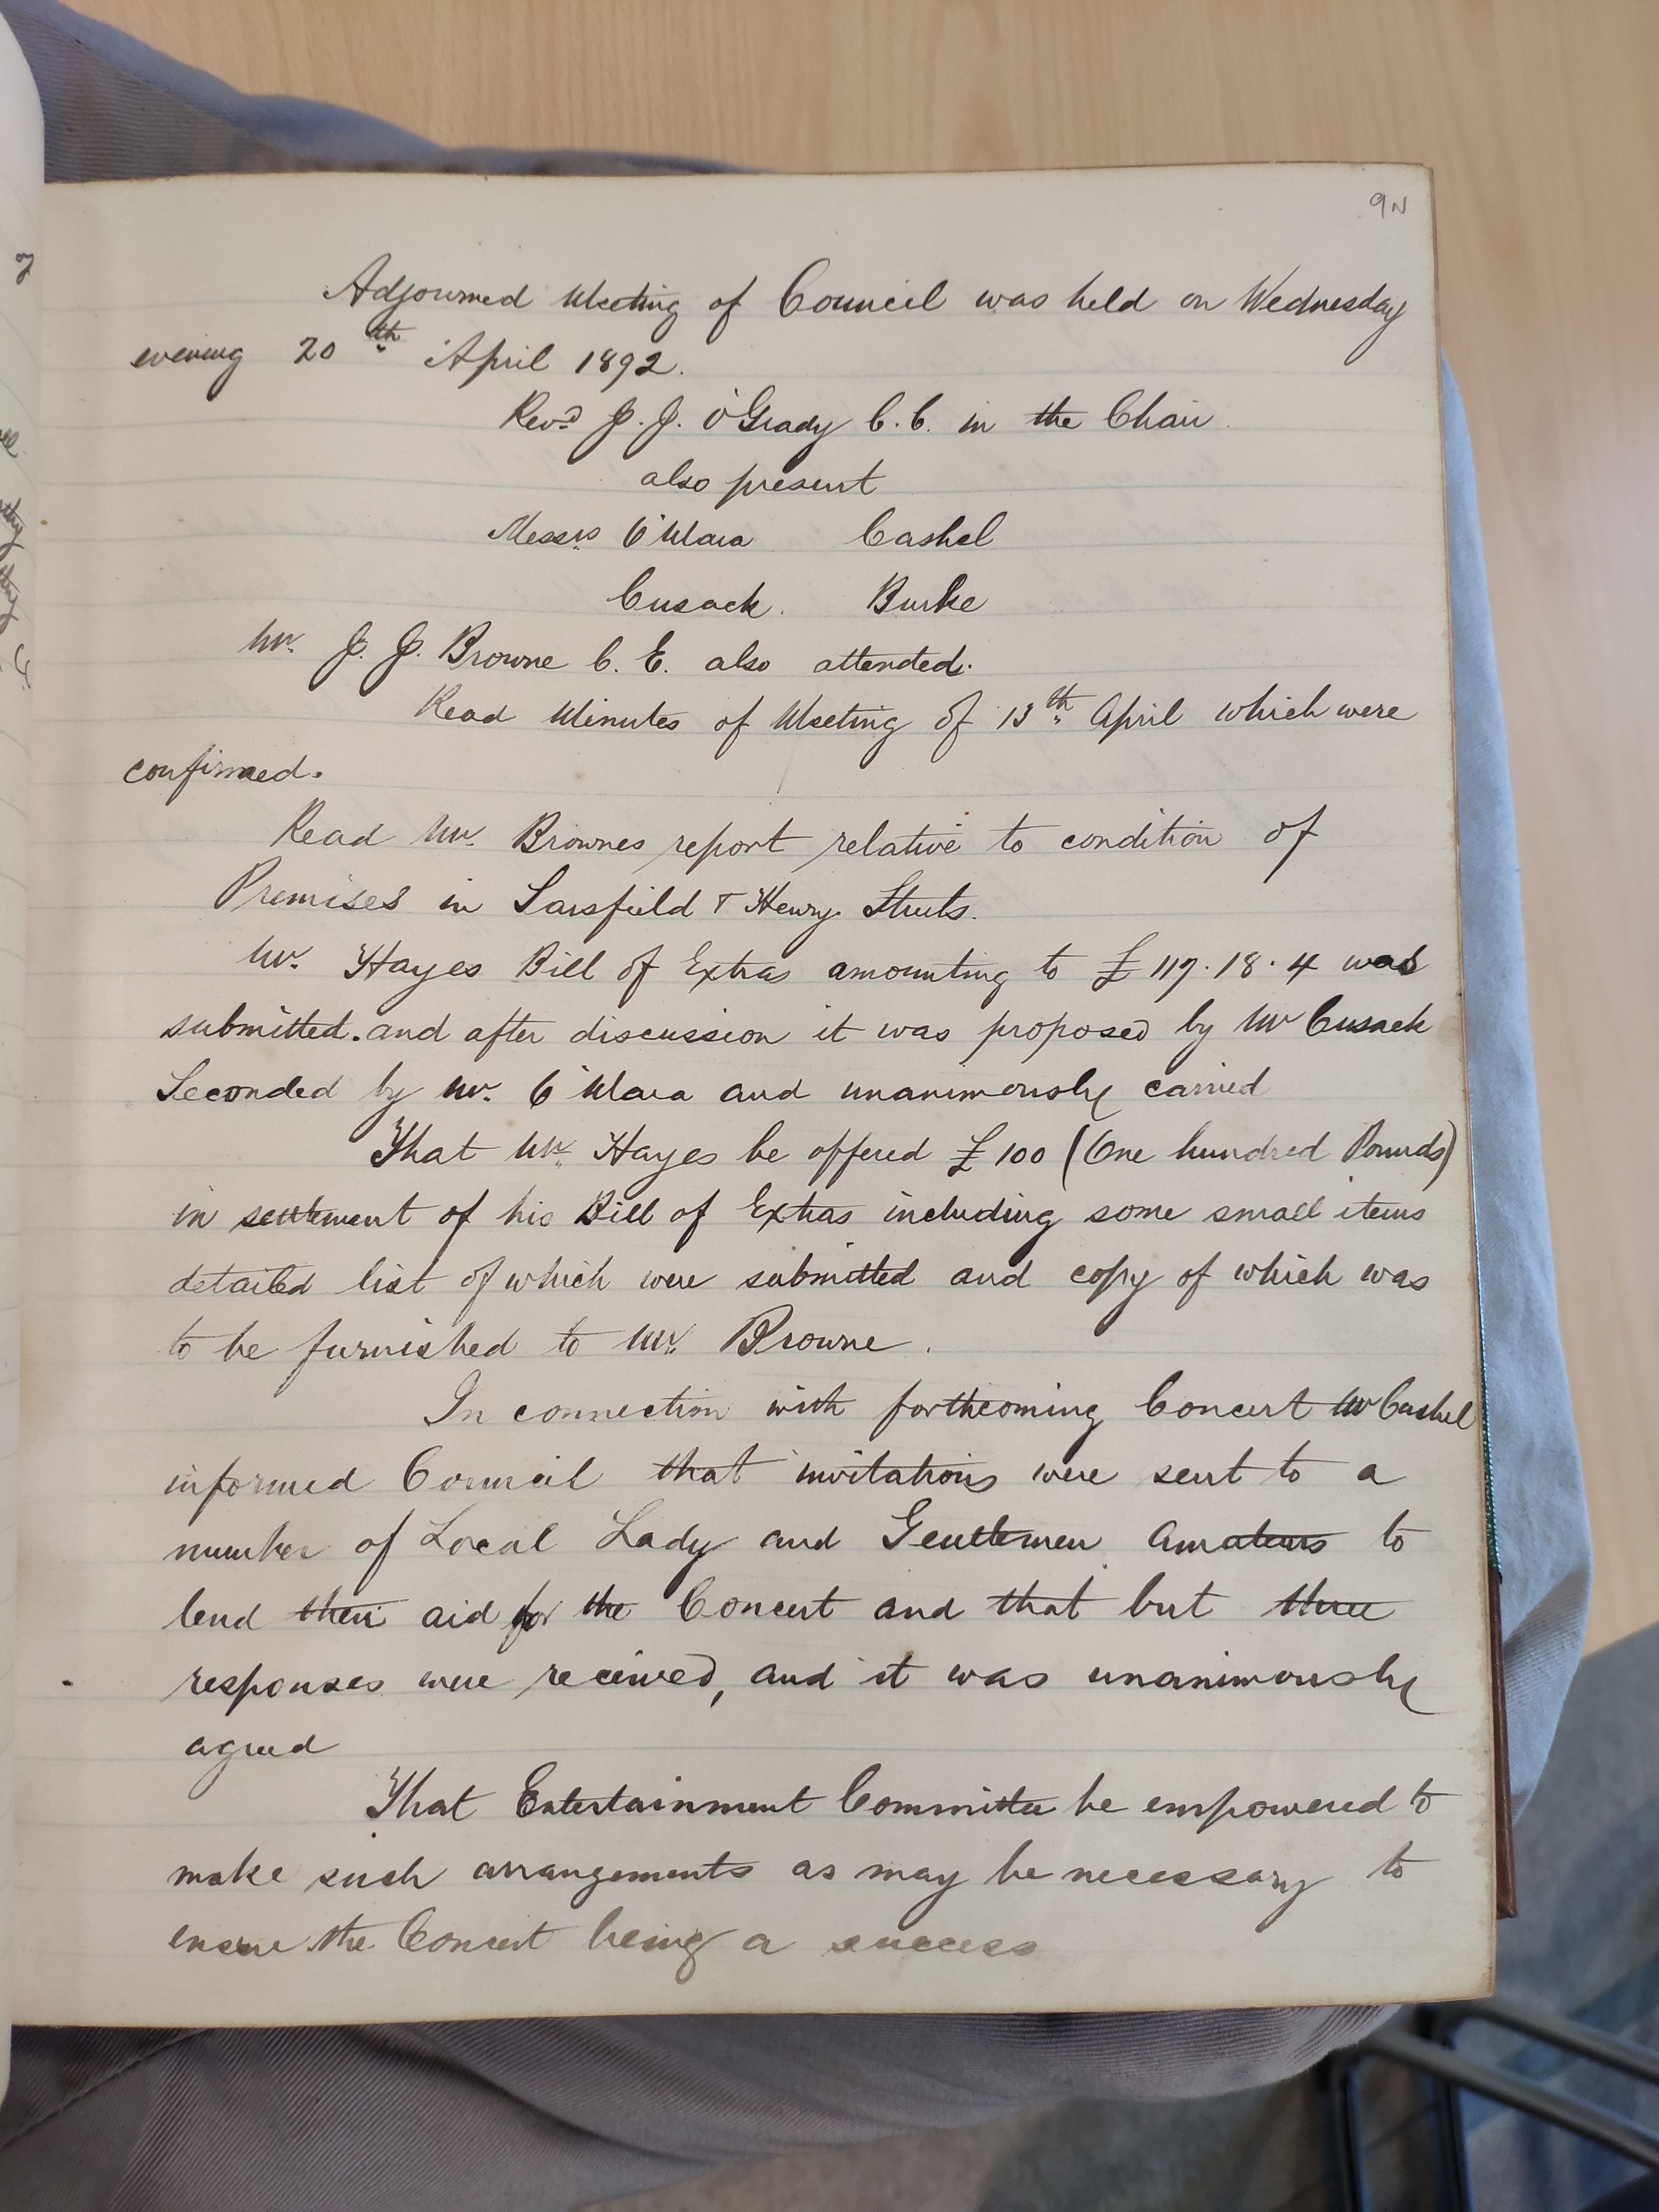 9N
Adjourned Meeting of Council was held on Wednesday
evening 20th April 1892.
Revd J. J. O'Grady C.C. in the Chair.
also present
Messrs O'Mara Cashel
Cusack. Burke
Mr. J. J. Browne C. E. also attended.
Read Minutes of Meeting of 13th April which were
confirmed.
Read Mr. Brownes report relative to condition of
Premises in Sarsfield & Henry Streets.
Mr. Hayes Bill of Extras amounting to £117.18.4 was
submitted. and after discussion it was proposed by Mr Cusack
Seconded by Mr. O'Mara and unanimously carried
That Mr. Hayes be offered £100 (One hundred Pounds)
in settlement of his Bill of Extras including some small items
detailed list of which were submitted and copy of which was
to be furnished to Mr. Browne.
In connection with forthcoming Concert Mr Cashel
informed Council that invitations were sent to a
number of Local Lady and Gentlemen Amateurs to
lend their aid for the Concert and that but three
responses were received, and it was unanimously
agreed
That Entertainment Committee be empowered to
make such arrangements as may be necessary to
ensure the Concert being a success